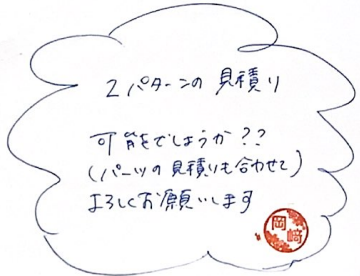 2パターンの見積り
可能でしょうか??
(パーツの見積りも合わせて)
よろしくお願いします
岡崎